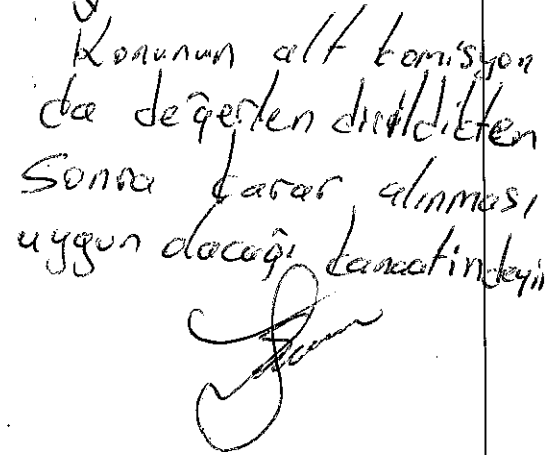 Konunun alt komisyon
da değerlendirildikten
Sonra karar alınması
uygun olacağı kanaatindeyim